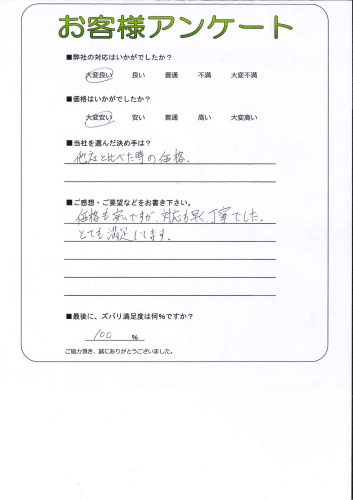 お客様アンケート
■弊社の対応はいかがでしたか？
大変良い 良い 普通 不満 大変不満
■価格はいかがでしたか？
大変安い 安い 普通 高い 大変高い
■当社を選んだ決め手は？
他店と比べた時の価格。
■ご感想・ご要望などをお書き下さい。
価格も安いですが、対応も早く、丁寧でした。
とても満足してます。
■最後に、ズバリ満足度は何%ですか？
100 %
ご協力頂き、誠にありがとうございました。